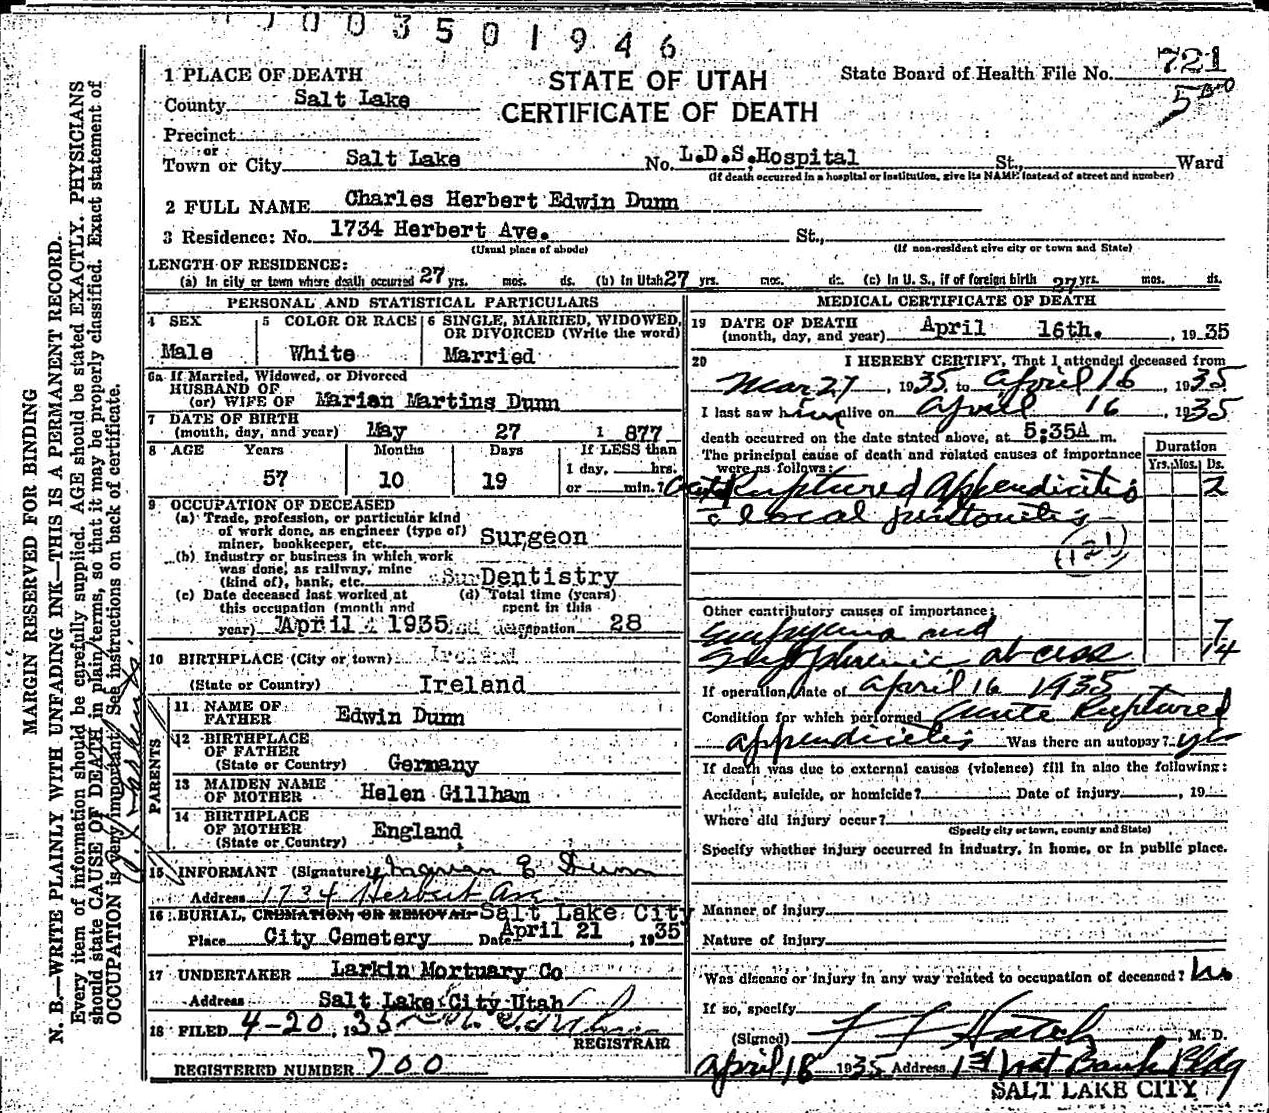 0003501946
STATE OF UTAH
CERTIFICATE OF DEATH
State Board of Health File No. 721
5
1 PLACE OF DEATH
County Salt Lake
Precinct
or
Town or City Salt Lake No. L.D.S. Hospital St., Ward
(If death occurred in a hospital or institution, give its NAME instead of street and number)
2 FULL NAME Charles Herbert Edwin Dunn
3 Residence: No. 1734 Herbert Ave. St.,
(Usual place of abode) (If non-resident give city or town and State)
LENGTH OF RESIDENCE:
(a) In city or town where death occurred 27 yrs. mos. ds. (b) In Utah 27 yrs. mos. ds. (c) In U. S., if of foreign birth 27 yrs. mos. ds.
PERSONAL AND STATISTICAL PARTICULARS
4 SEX Male
5 COLOR OR RACE White
6 SINGLE, MARRIED, WIDOWED, OR DIVORCED (Write the word) Married
6a If Married, Widowed, or Divorced
HUSBAND OF
(or) WIFE OF Marian Martins Dunn
7 DATE OF BIRTH
(month, day, and year) May 27 1 877
8 AGE Years Months Days If LESS than
57 10 19 1 day, hrs.
or min.?
9 OCCUPATION OF DECEASED
(a) Trade, profession, or particular kind
of work done, as engineer (type of)
miner, bookkeeper, etc. Surgeon
(b) Industry or business in which work
was done, as railway, mine
(kind of), bank, etc. Dentistry
(c) Date deceased last worked at
this occupation (month and
year) April 1935
(d) Total time (years)
spent in this
occupation 28
10 BIRTHPLACE (City or town) Ireland
(State or Country) Ireland
PARENTS
11 NAME OF
FATHER Edwin Dunn
12 BIRTHPLACE
OF FATHER
(State or Country) Germany
13 MAIDEN NAME
OF MOTHER Helen Gillham
14 BIRTHPLACE
OF MOTHER
(State or Country) England
15 INFORMANT (Signature) E Dunn
Address 1734 Herbert Ave
16 BURIAL, CREMATION, OR REMOVAL Salt Lake City
Place City Cemetery Date April 21, 1935
17 UNDERTAKER Larkin Mortuary Co
Address Salt Lake City Utah
18 FILED 4-20, 1935
REGISTRAR
REGISTERED NUMBER 700
MEDICAL CERTIFICATE OF DEATH
19 DATE OF DEATH
(month, day, and year) April 16th. , 1935
20 I HEREBY CERTIFY, That I attended deceased from
Mar 27, 1935 to April 16, 1935
I last saw him alive on April 16, 1935
death occurred on the date stated above, at 5:35A m.
The principal cause of death and related causes of importance
were as follows:
Duration
Yrs. Mos. Ds.
Acute Ruptured Appendicitis 2
c local peritonitis
(121)
Other contributory causes of importance:
Empyema and 7
Subphrenic abcess 14
If operation, date of April 16 1935
Condition for which performed Acute Ruptured
appendicitis Was there an autopsy? yes
If death was due to external causes (violence) fill in also the following:
Accident, suicide, or homicide? Date of injury , 19
Where did injury occur?
(Specify city or town, county and State)
Specify whether injury occurred in industry, in home, or in public place.
Manner of injury
Nature of injury
Was disease or injury in any way related to occupation of deceased? No
If so, specify
(Signed) F F Hatch, M. D.
April 18 1935 Address 1st Nat Bank Bldg
SALT LAKE CITY
MARGIN RESERVED FOR BINDING
N. B.—WRITE PLAINLY WITH UNFADING INK—THIS IS A PERMANENT RECORD.
Every item of information should be carefully supplied. AGE should be stated EXACTLY. PHYSICIANS
should state CAUSE OF DEATH in plain terms, so that it may be properly classified. Exact statement of
OCCUPATION is very important. See instructions on back of certificate.